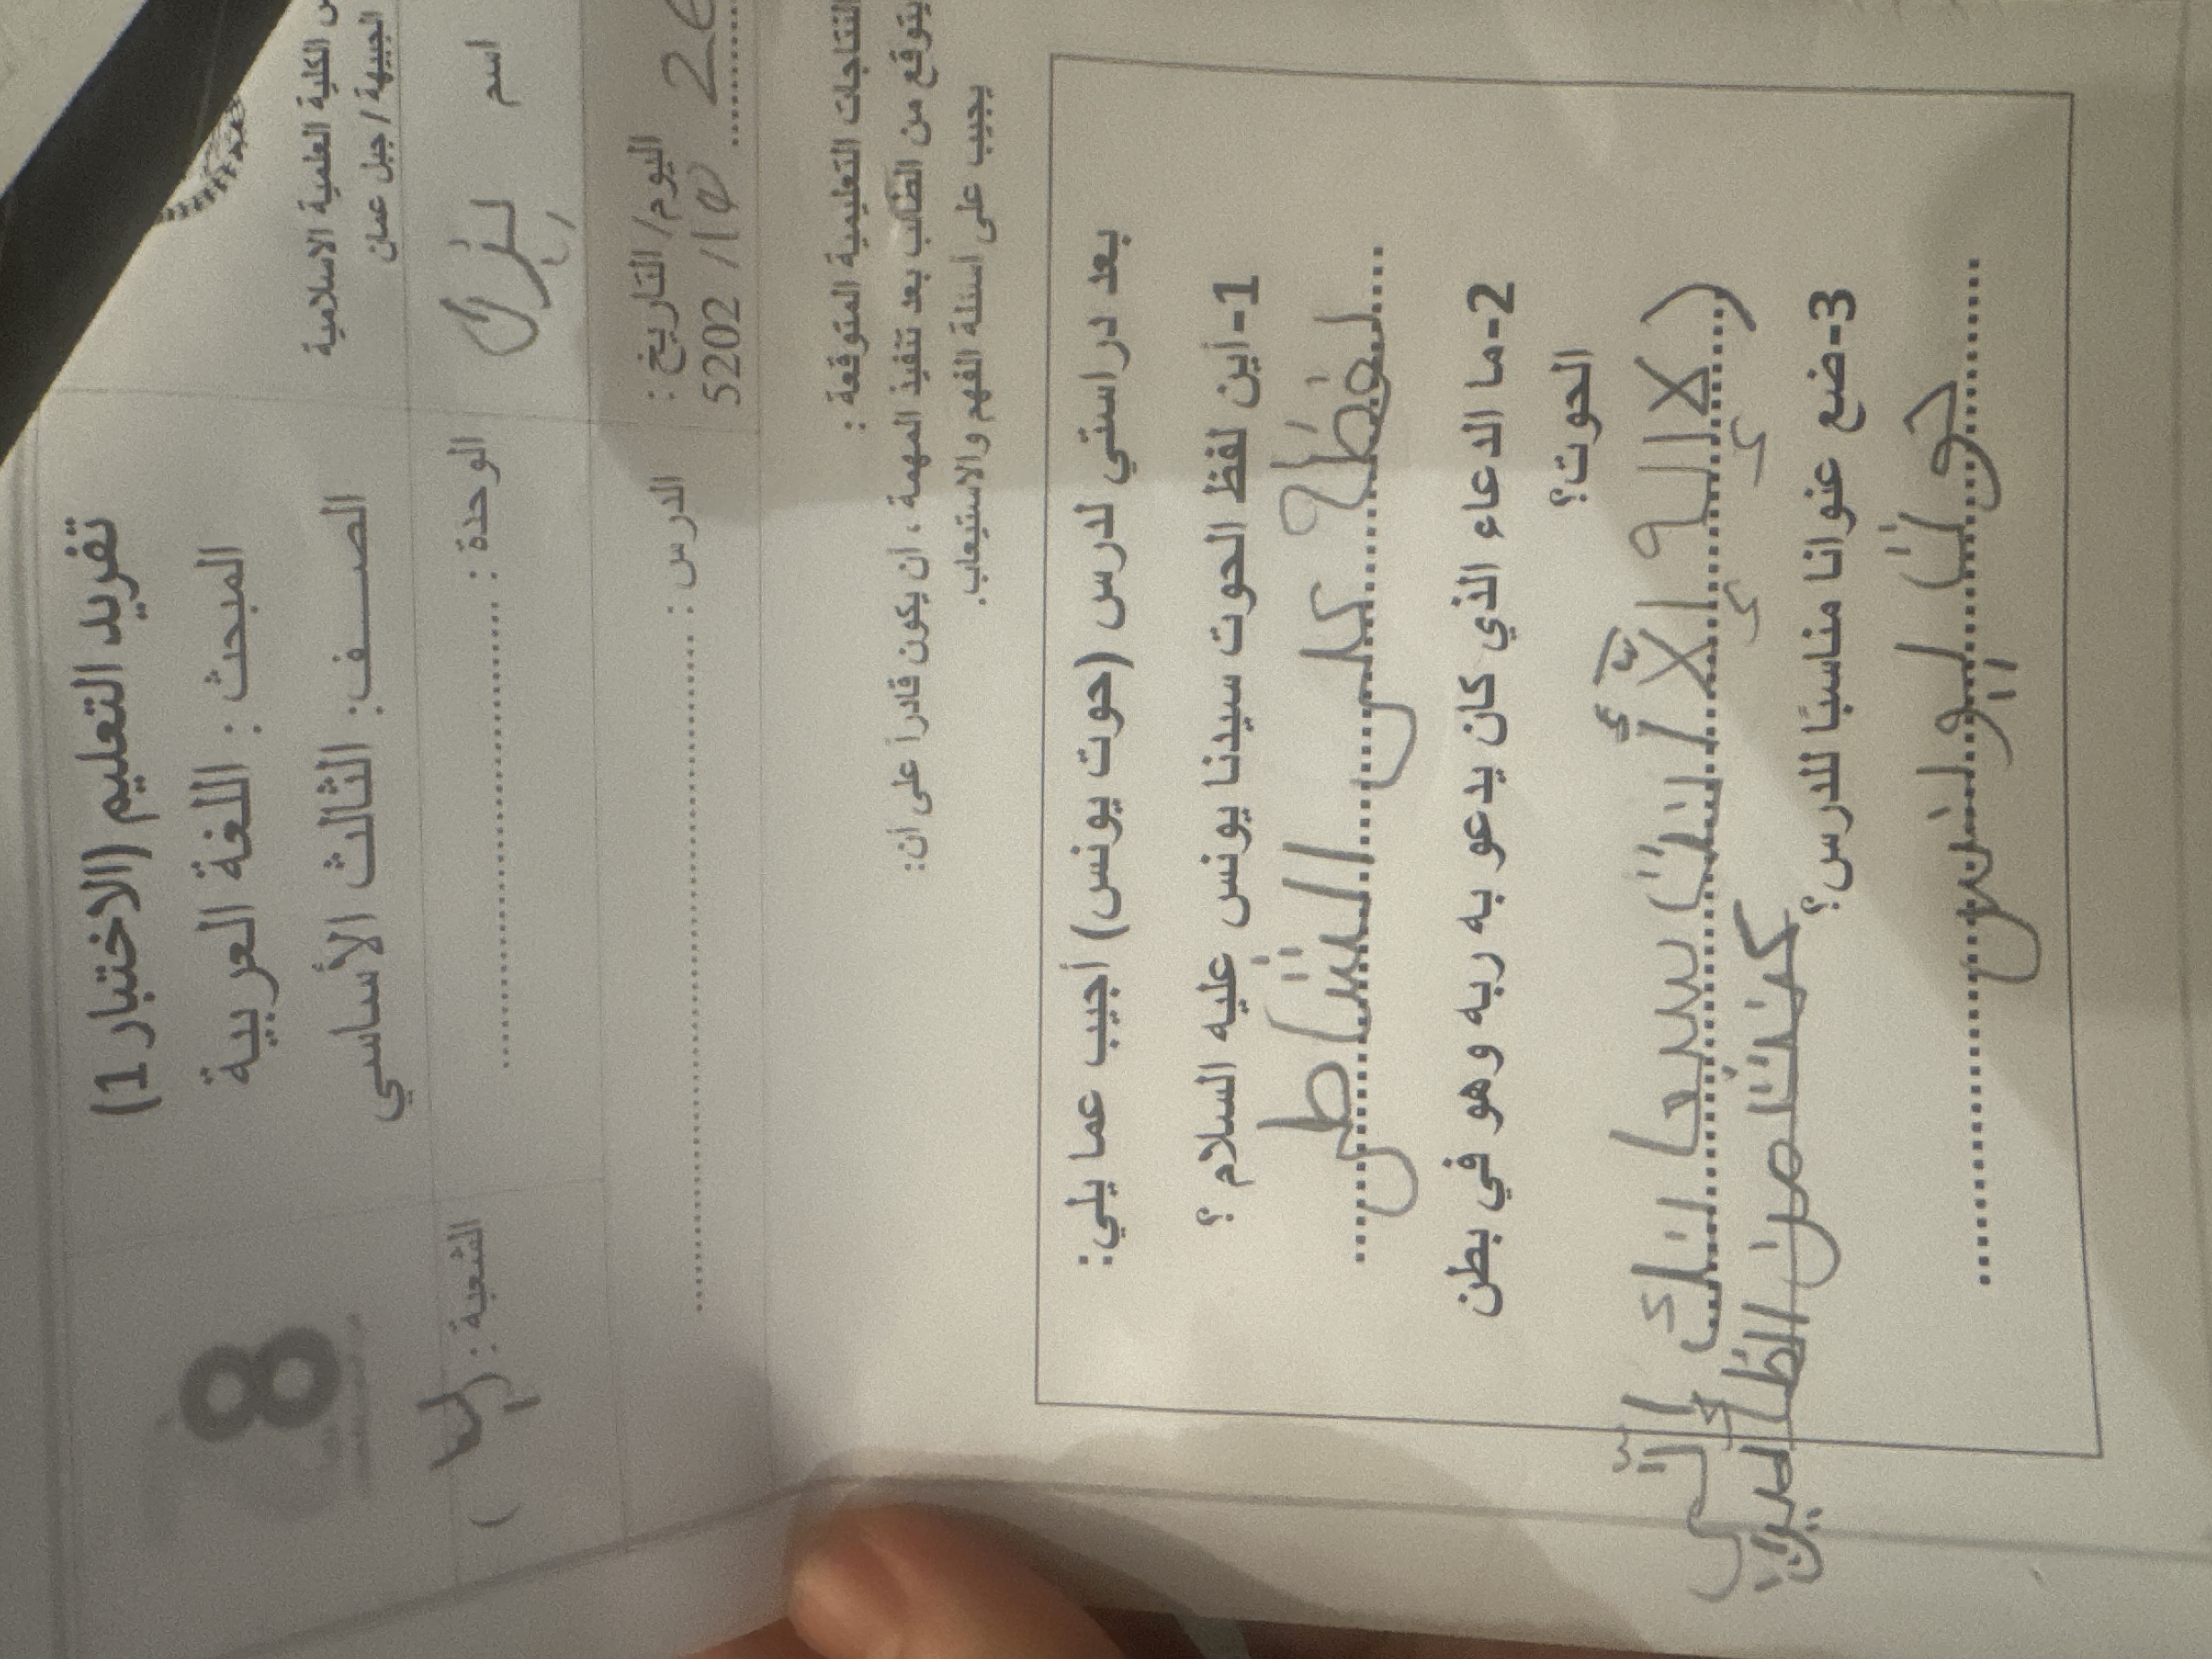 الكلية العلمية الاسلامية
الجبيهة / جبل عمان
تفريد التعليم (الاختبار 1)
المبحث : اللغة العربية
الصـــف: الثالث الأساسي
8
اسم
الوحدة : ..............................
الشعبة : (
اليوم/ التاريخ :
5202 /10
الدرس : ..............................
النتاجات التعليمية المتوقعة :
يتوقع من الطالب بعد تنفيذ المهمة ، أن يكون قادراً على أن:
يجيب على أسئلة الفهم والاستيعاب.
بعد دراستي لدرس (حوت يونس) أجيب عما يلي:
1-أين لفظ الحوت سيدنا يونس عليه السلام ؟
لفظه على الشاطئ
2-ما الدعاء الذي كان يدعو به ربه وهو في بطن
الحوت؟
(لا إله إلا أنت سبحانك إنّي
كنت من الظالمين
3-ضع عنوانا مناسبًا للدرس؟
حوت يونس